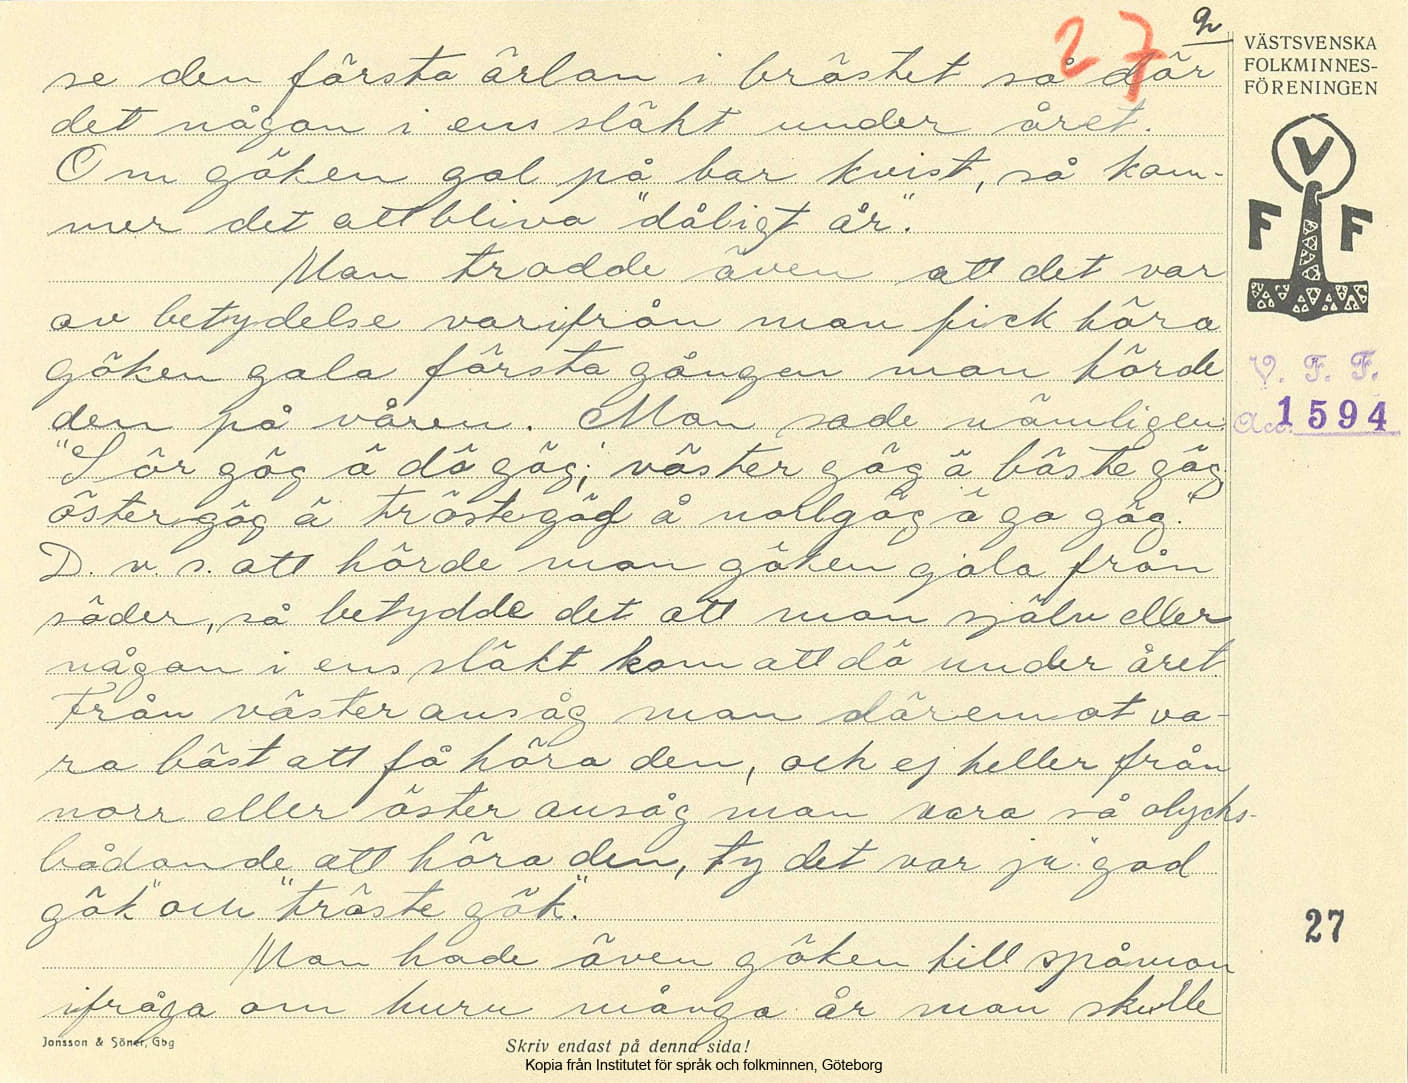 27
2
VÄSTSVENSKA
FOLKMINNES-
FÖRENINGEN
V
F F
V. F. F.
Acc. 1594
se den första ärlan i bröstet så dör
det någon i ens släkt under året.
Om göken gol på bar kvist, så kom-
mer det att bliva "dåligt år".
Man trodde även att det var
av betydelse varifrån man fick höra
göken gala första gången man hörde
den på våren. Man sade nämligen
"Sör gög ä dö gög; väster gög ä bäste gög,
öster gög ä trästegög å norlgög ä go gög."
D. v. s. att hörde man göken gala från
söder, så betydde det att man själv eller
någon i ens släkt kom att dö under året
Från väster ansåg man däremot va-
ra bäst att få höra den, och ej heller från
norr eller öster ansåg man vara så olycks-
bådande att höra den, ty det var ju "god
gök" och "tröste gök".
Man hade även göken till spåman
ifråga om huru många år man skulle
27
Jonsson & Söner, Gbg
Skriv endast på denna sida!
Kopia från Institutet för språk och folkminnen, Göteborg